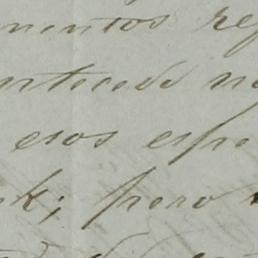 mentos re
antecede no
esos espe
k; pero